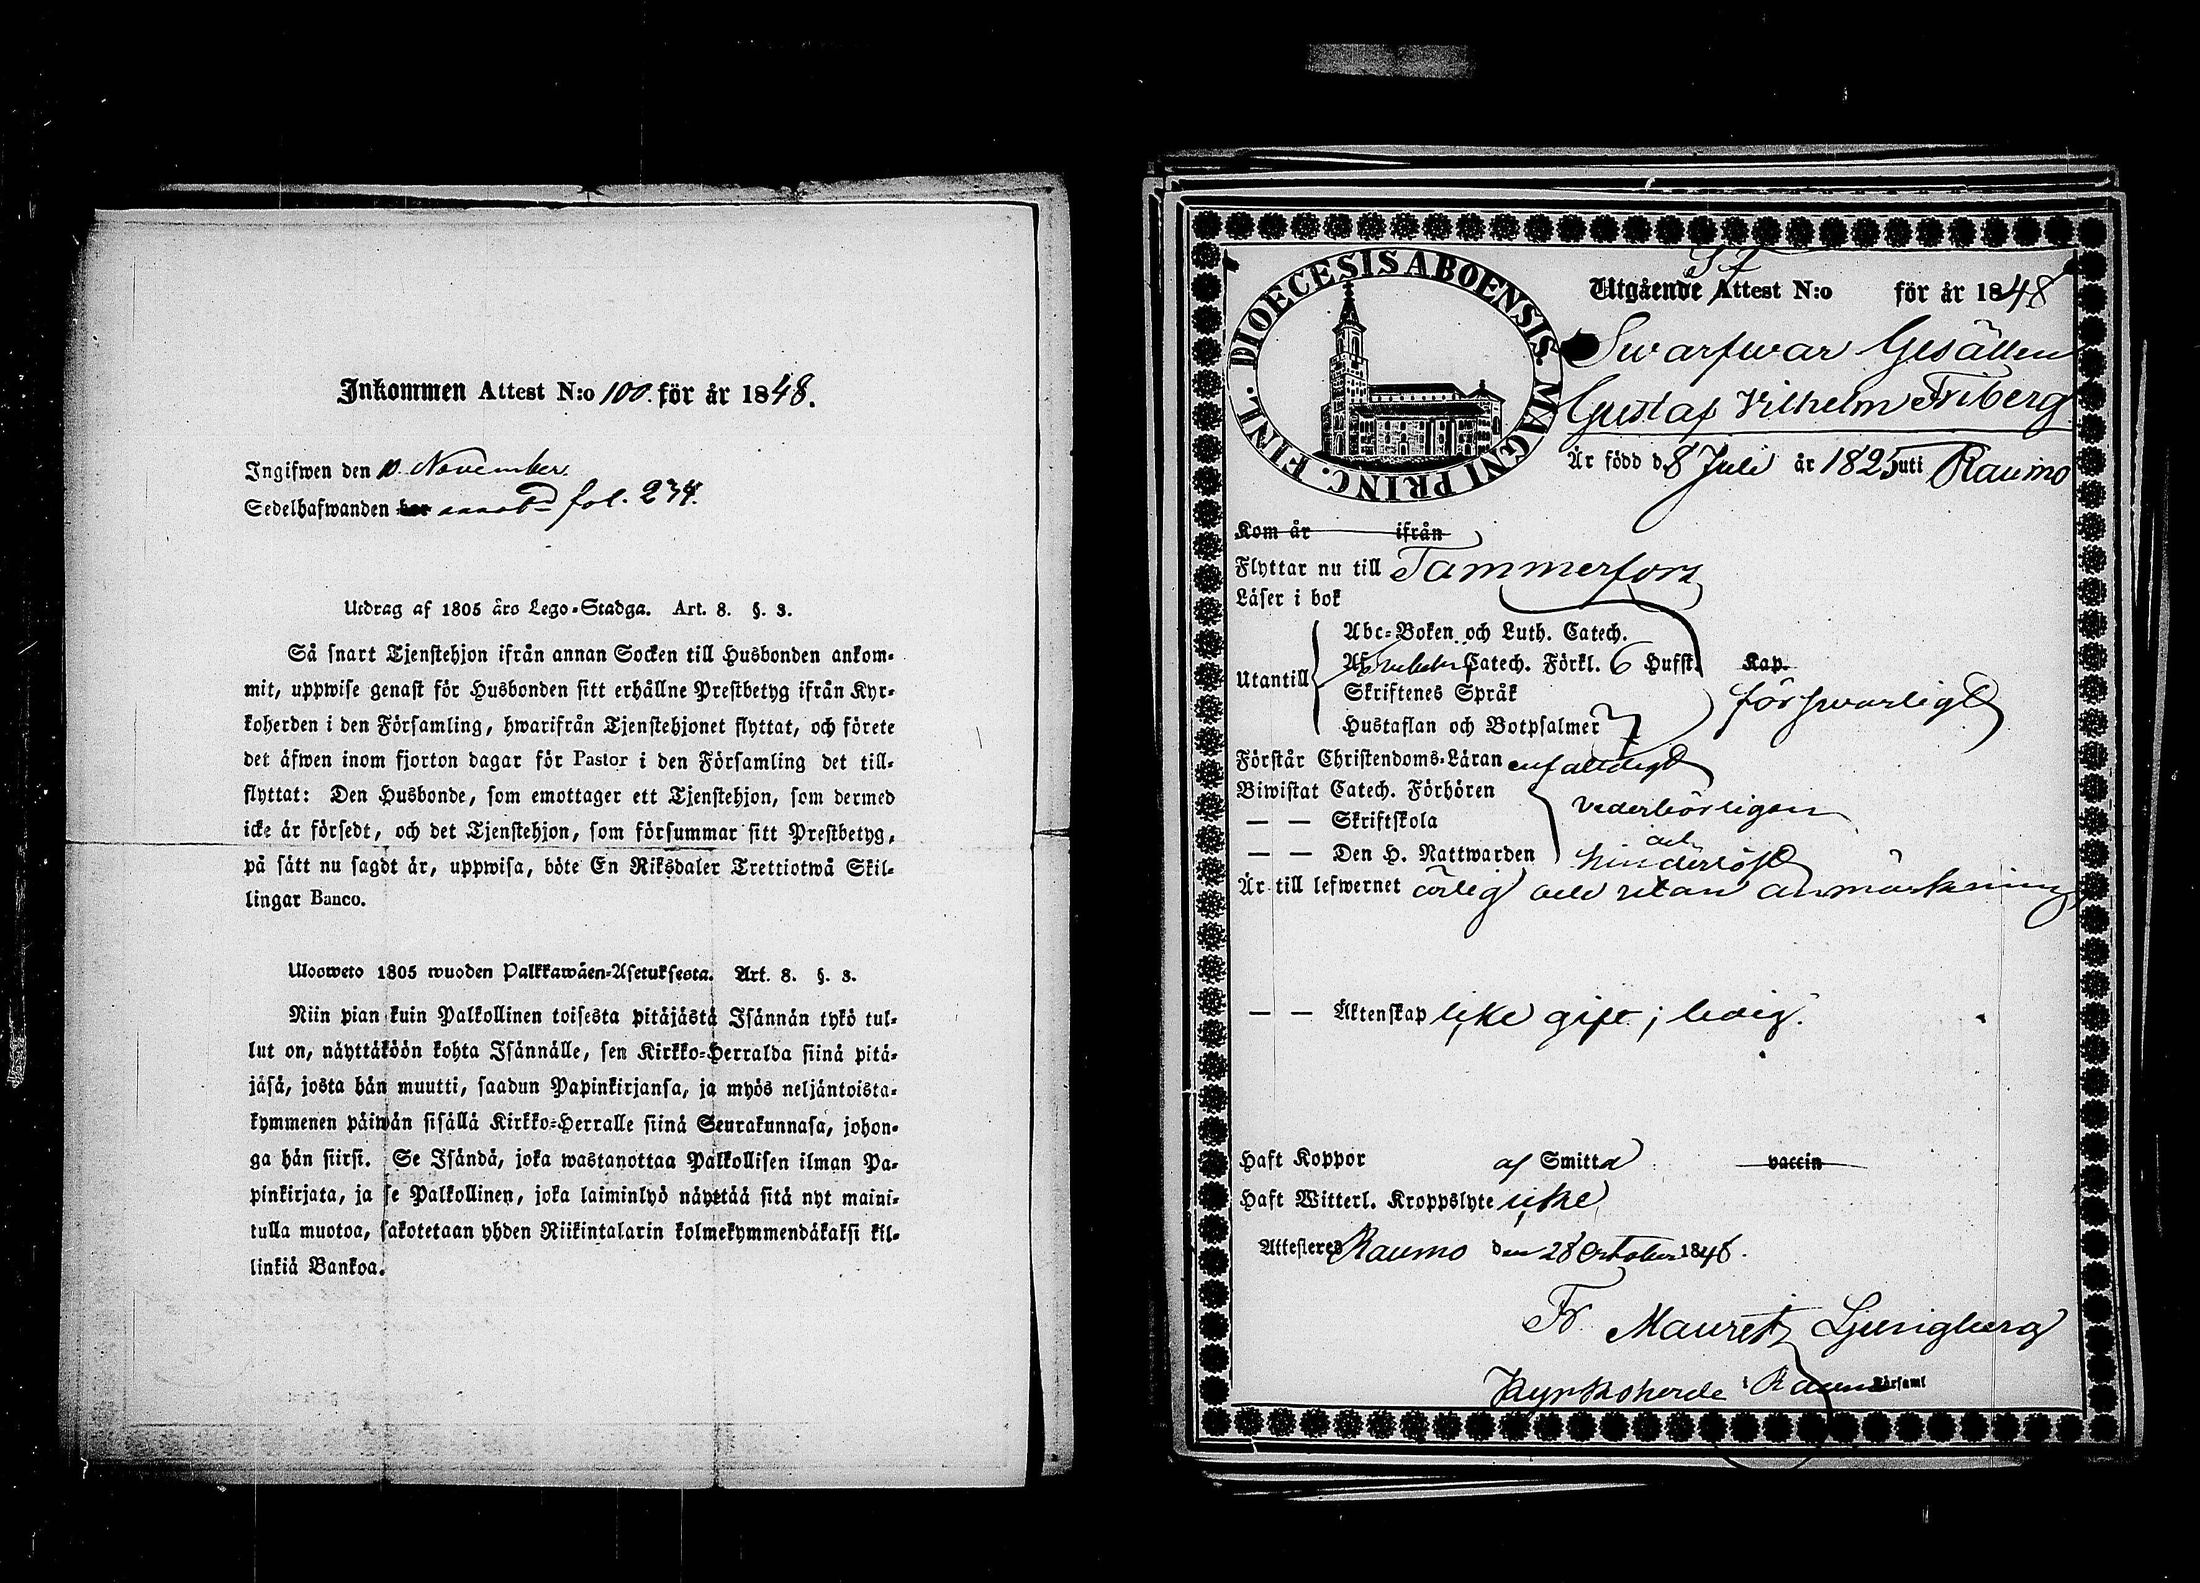 Inkommen Attest N:o 100. för år 1848.
Ingifwen den 10 November
Sedelhafwanden fol. 234.
Utdrag af 1805 års Lego-Stadga. Art. 8. §. 3.
Så snart Tjenstehjon ifrån annan Socken till Husbonden ankom-
mit, uppwise genast för Husbonden sitt erhållne Prestbetyg ifrån Kyr-
koherden i den Församling, hwarifrån Tjenstehjonet flyttat, och förete
det äfwen inom fjorton dagar för Pastor i den Församling det till-
flyttat: Den Husbonde, som emottager ett Tjenstehjon, som dermed
icke är försedt, och det Tjenstehjon, som försummar sitt Prestbetyg,
på sätt nu sagdt är, uppwisa, böte En Riksdaler Trettiotwå Skil-
lingar Banco.
Ulosweto 1805 wuoden Palkkawäen-Asetuksesta. Art. 8. §. 3.
Niin pian kuin Palkollinen toisesta pitäjästä Isännän tykö tul-
lut on, näyttäköön kohta Isännälle, sen Kirkko-Herralda siinä pitä-
jäsä, josta hän muutti, saadun Papinkirjansa, ja myös neljäntoista-
kymmenen päiwän sisällä Kirkko-Herralle siinä Seurakunnasa, johon-
ga hän siirsi. Se Isändä, joka wastanottaa Palkollisen ilman Pa-
pinkirjata, ja se Palkollinen, joka laiminlyö näyttää sitä nyt maini-
tulla muotoa, sakotetaan yhden Riikintalarin kolmekymmendäkaksi kil-
linkiä Bankoa.
DIOECESIS ABOENSIS. MAGNI PRINC. FINL.
Utgående Attest N:o 57 för år 1848
Swarfwar Gesällen
Gustaf Vilhelm Friberg
Är född d. 8 Juli år 1825 uti Raumo
Kom år ifrån
Flyttar nu till Tammerfors
Läser i bok
Abc-Boken och Luth. Catech.
Utantill Af Catech. Förkl. 6 Hufst. Kap.
Skriftenes Språk försvarligt
Hustaflan och Botpsalmer
Förstår Christendoms-Läran enfaldigt
Biwistat Catech. Förhören vederbörligen
— — Skriftskola och
— — Den H. Nattwarden hinderlöst
Är till lefwernet ärlig och utan anmärkning
— — Äktenskap icke gift; ledig.
Haft Koppor af Smitta vaccin
Haft Witterl. Kroppslyte icke
Attesteres Raumo den 28 October 1848.
Fr. Mauretz Ljungberg
Kyrkoherde i Raumo Församl